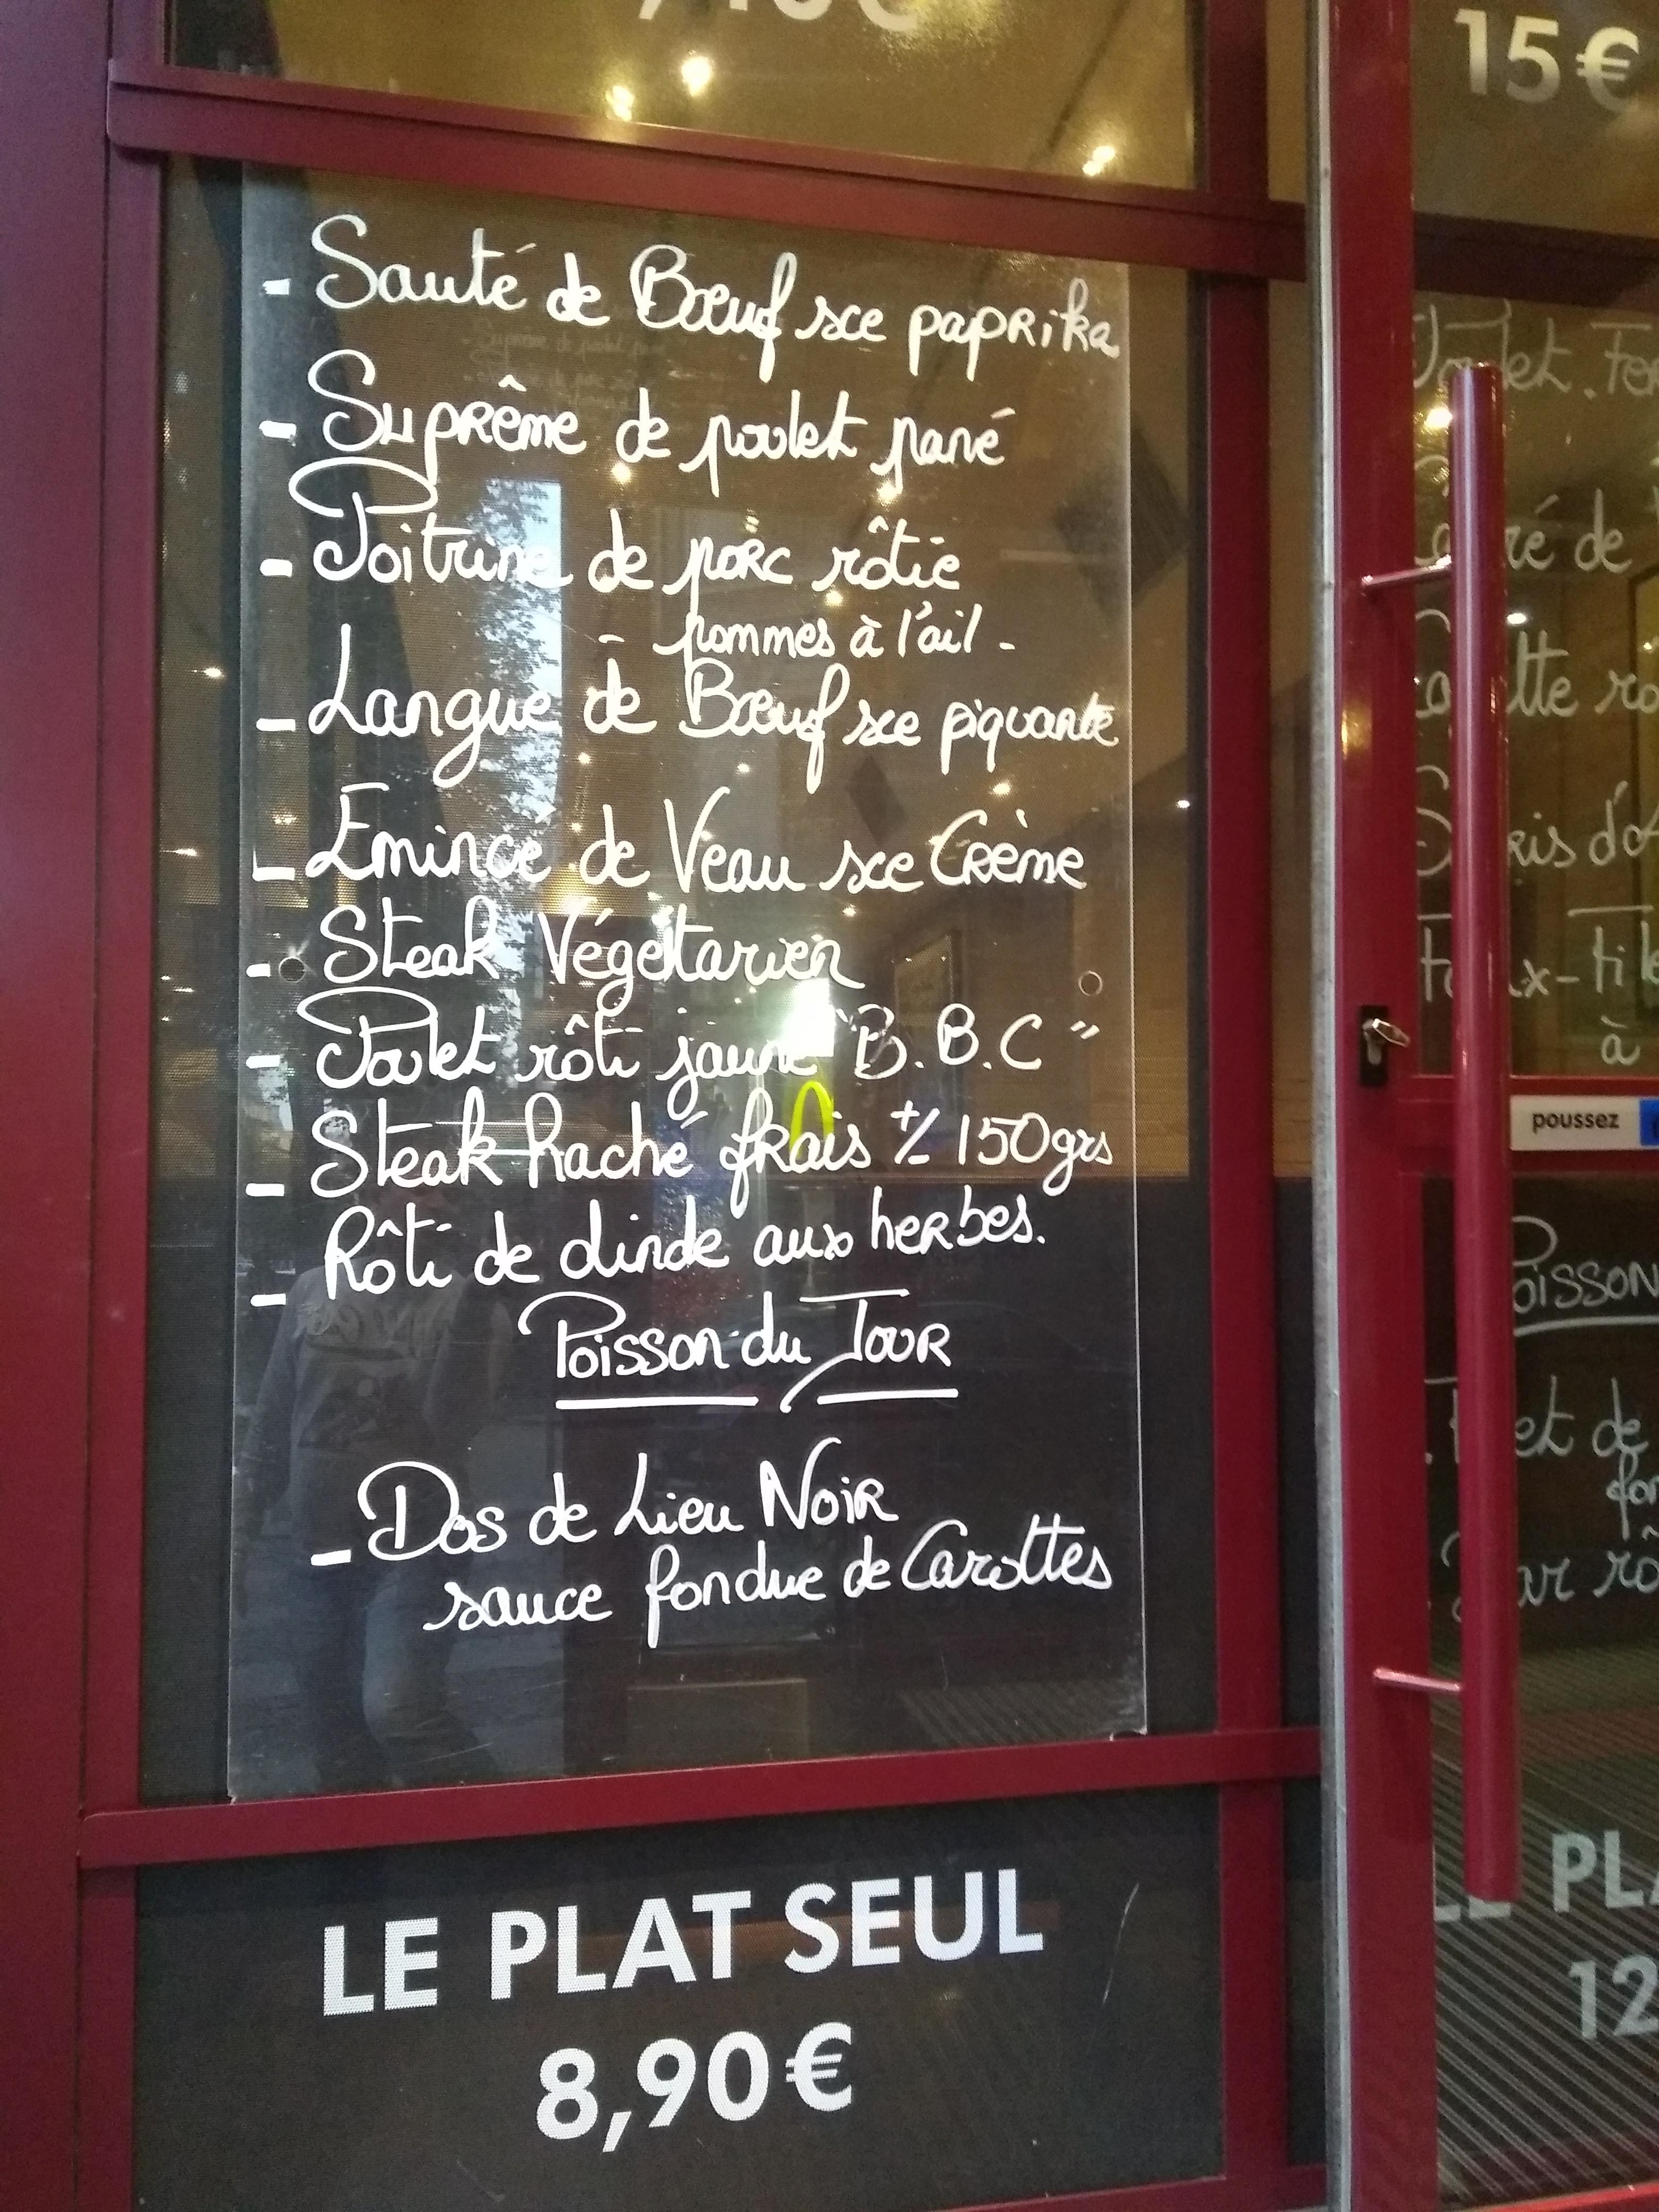 15€
- Sauté de Bœuf sce paprika
- Suprême de poulet pané
- Poitrine de porc rôtie
- pommes à l'ail -
- Langue de Bœuf sce piquante
- Emincé de Veau sce Crème
- Steak Végétarien
- Poulet rôti jaune "B.B.C"
- Steak haché frais +/- 150grs
- Rôti de dinde aux herbes.
Poisson du Jour
- Dos de Lieu Noir
sauce fondue de Carottes
LE PLAT SEUL
8,90€
de
à
poussez
POISSON
de
12